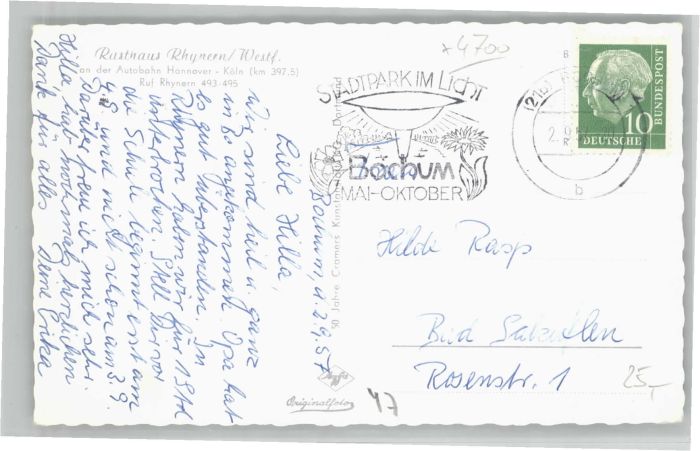 Rasthaus Rhynern/Westf.
an der Autobahn Hannover - Köln (km 397.5)
Ruf Rhynern 493-495
Bochum, d. 2.9.57
Liebe Hilla,
Wir sind heil u. ganz
in Bo angekommen. Opa hat
es gut überstanden. In
Rhynern haben wir für 1 Std
unterbrochen. Stell Dir vor
die Schule beginnt erst am
4.9. und nicht schon am 3.9.
Darüber freue ich mich sehr.
Hilla, hab nochmals herzlichen
Dank für alles Deine Erika
50 Jahre Cramers Kunstanstalt
Agfa
Originalfoto
STADTPARK IM LICHT
Bochum
MAI-OKTOBER
2.9.
b
10
DEUTSCHE
BUNDESPOST
Hilde Rasp
Bad Salzuflen
Rosenstr. 1
x 4700
47
25,-